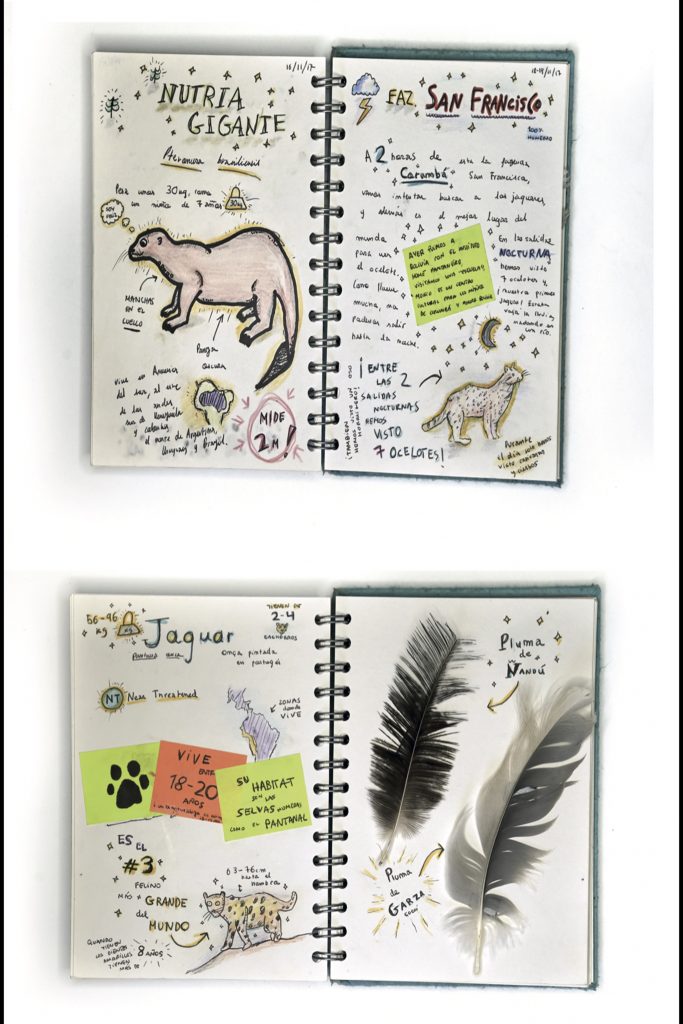 16/11/17
NUTRIA
GIGANTE
Pteronura brasiliensis
Pesa unos 30 kg, como
un niño de 7 años
30 kg
SOY
FELIZ
MANCHAS
EN EL
CUELLO
Panza
oscura
Vive en America
del sur, al este
de los andes
sur de Venezuela
y colombia,
al norte de Argentina,
Uruguay y Brazil.
MIDE
2 M!
18-19/11/17
FAZ. SAN FRANCISCO
100%
HUMEDAD
A 2 horas de
Corumbá
esta la fazenda
San Francisco,
vamos intentar buscar a los jaguares
y además es el mejor lugar del
mundo
para ver
el ocelote.
Como llueve
mucho, no
pudimos salir
hasta la noche.
AYER FUIMOS A
BOLIVIA CON EL MOINHO
VISITANDO UNA ESCUELA,
MOINHO ES UN CENTRO
CULTURAL PARA LOS NIÑOS
DE CORUMBÁ Y
En las salidas
NOCTURNA
hemos visto
7 ocelotes y
nuestro primer
Jaguar! Estaba
bajo la lluvia,
nadando en
un río.
¡ENTRE
LAS 2
SALIDAS
NOCTURNAS
HEMOS
VISTO
7 OCELOTES!
¡TAMBIEN
HEMOS VISTO UN OSO
HORMIGUERO!
Durante
el dia solo hemos
visto
56-96
kg
KG
Jaguar
PANTHERA ONCA
Onça pintada
en portugés
TIENEN DE
2-4
CACHORROS
NT Near Threatened
ZONAS
donde
VIVE
VIVE
ENTRE
18-20
AÑOS
SU HABITAT
SON LAS
SELVAS HÚMEDAS
COMO EL PANTANAL
ES EL
#3
FELINO
MÁS + GRANDE
del
MUNDO
63-76cm
hasta el
hombro
QUANDO
TIENEN
LOS DIENTES
AMARILLOS
TIENEN
MAS DE
8 AÑOS
Pluma
de
ÑANDÚ
Pluma
de
GARZA